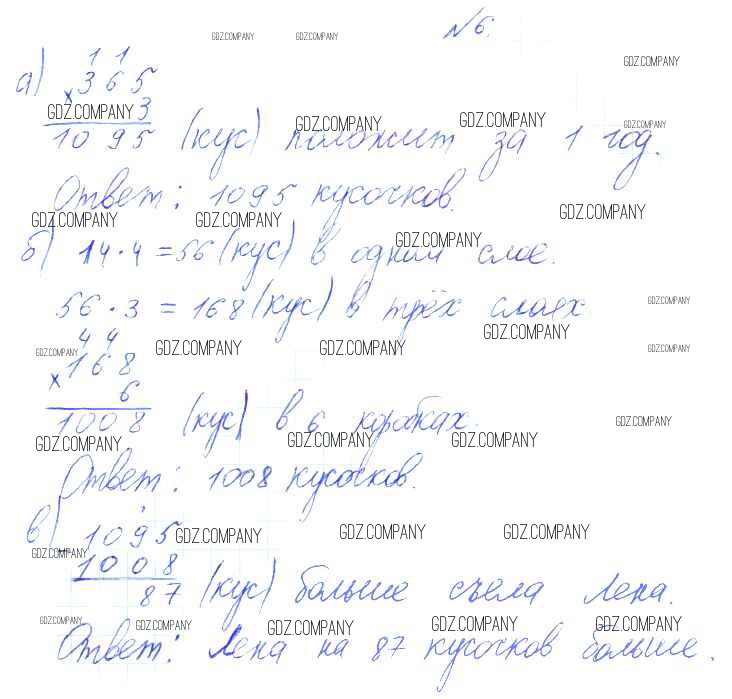 № 6.
GDZ.COMPANY GDZ.COMPANY
1 1
а) 365
GDZ.COMPANY
×
3
GDZ.COMPANY
GDZ.COMPANY GDZ.COMPANY GDZ.COMPANY
1095 (кус) положит за 1 год.
Ответ: 1095 кусочков.
GDZ.COMPANY GDZ.COMPANY GDZ.COMPANY
б) 14·4=56 (кус) в одном слое.
GDZ.COMPANY
56·3=168 (кус) в трёх слоях
GDZ.COMPANY
GDZ.COMPANY
4 4
GDZ.COMPANY GDZ.COMPANY GDZ.COMPANY GDZ.COMPANY
168
×
6
1008 (кус) в 6 коробках.
GDZ.COMPANY
GDZ.COMPANY GDZ.COMPANY GDZ.COMPANY
Ответ: 1008 кусочков.
в) 1095
GDZ.COMPANY GDZ.COMPANY GDZ.COMPANY
GDZ.COMPANY
1008
87 (кус) больше съела Лена.
GDZ.COMPANY GDZ.COMPANY GDZ.COMPANY GDZ.COMPANY GDZ.COMPANY
Ответ: Лена на 87 кусочков больше.